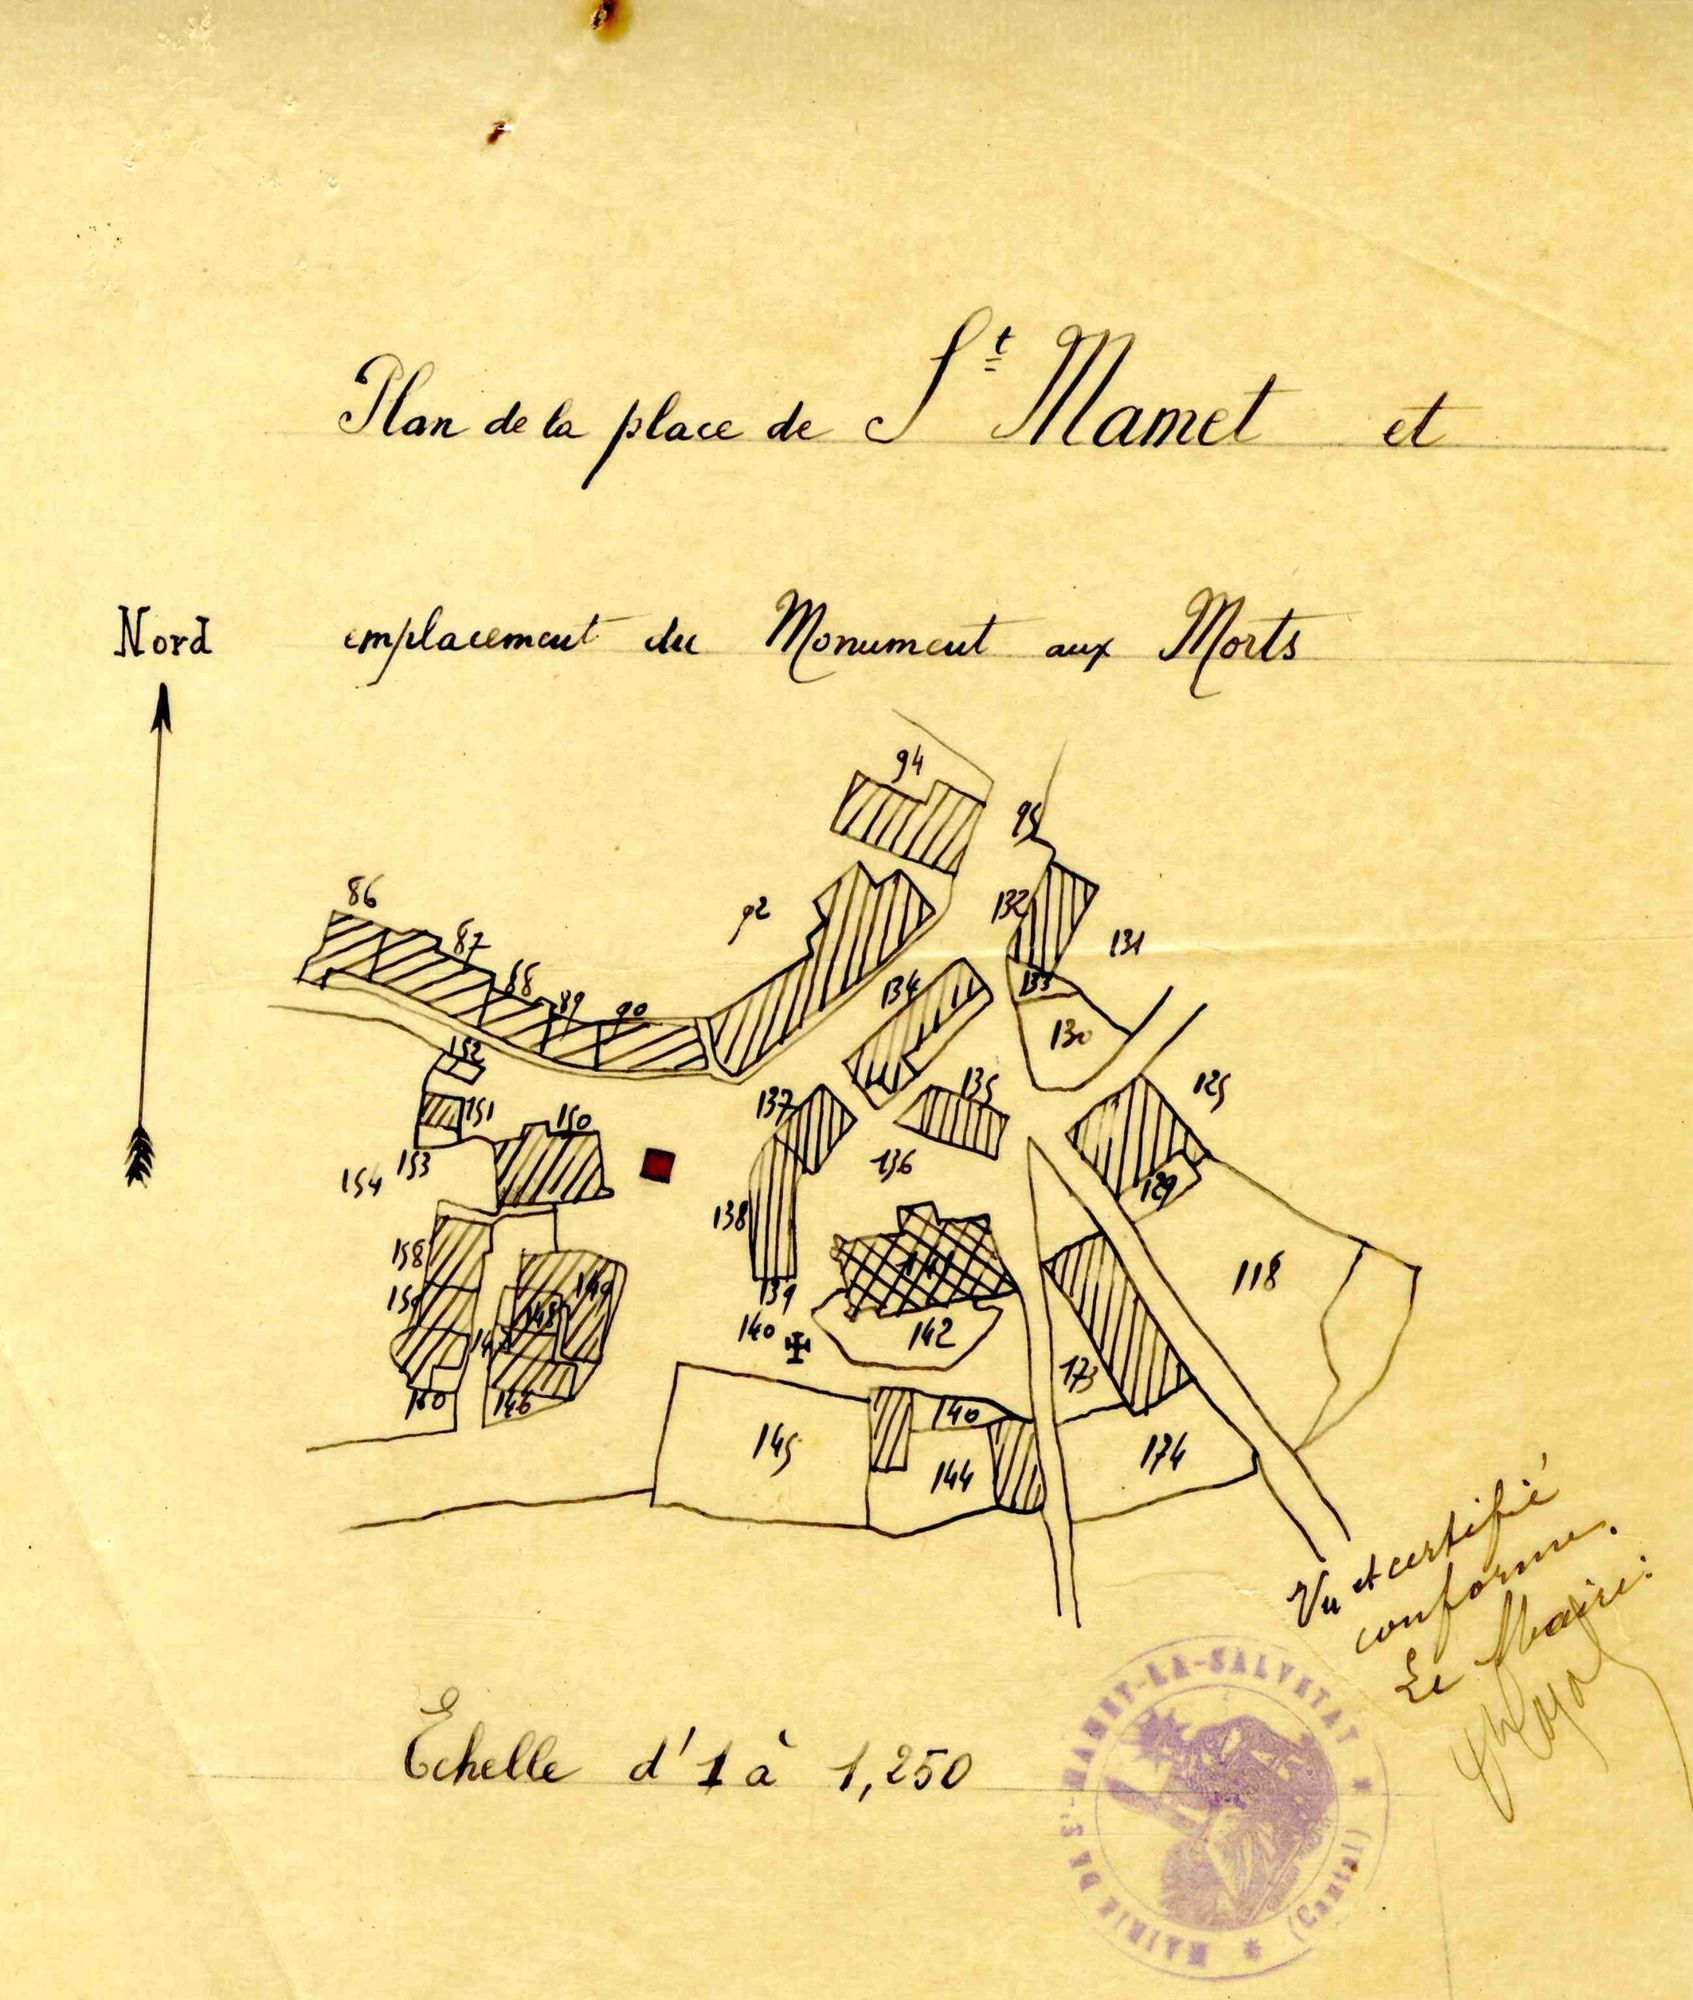 Plan de la place de St Mamet et
Nord
emplacement du Monument aux Morts
94
95
86
92
132
87
131
88
134
133
89
90
130
152
135
125
137
151
150
136
153
154
129
138
158
141
118
149
159
139
148
140
142
147
173
160
146
140
145
144
174
Vu et certifié
conforme.
Le Maire:
Echelle d'1 à 1,250
MAIRIE DE St-MAMET-LA-SALVETAT
(Cantal)